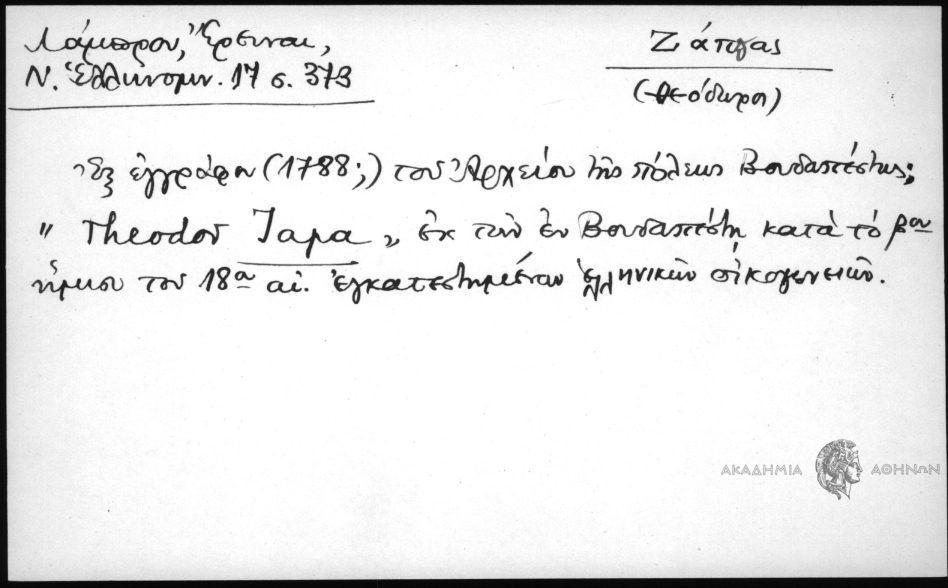 Λάμπρου, Ἔρευναι,
Ν. Ἑλληνομν. 17 σ. 373
Ζάπας
(Θεόδωρος)
Ἐξ ἐγγράφου (1788;) τοῦ Ἀρχείου τῆς πόλεως Βουδαπέστης;
" Theodor Japa „ ἐκ τῶν ἐν Βουδαπέστῃ κατὰ τὸ βον
ἥμισυ τοῦ 18ου αἰ. ἐγκατεστημένων ἑλληνικῶν οἰκογενειῶν.
ΑΚΑΔΗΜΙΑ ΑΘΗΝΩΝ